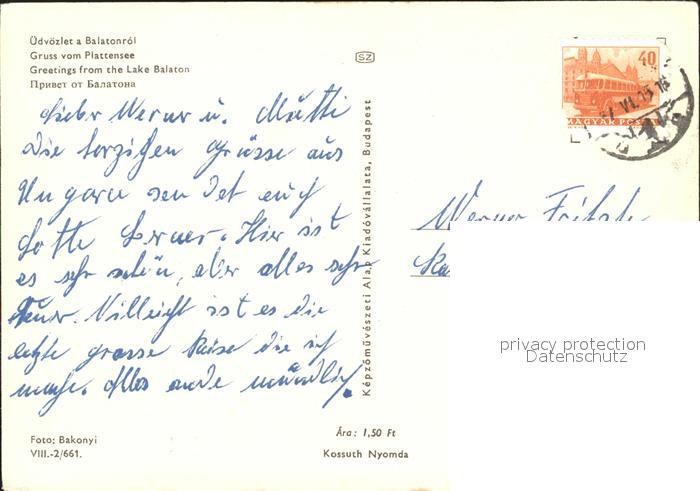 Üdvözlet a Balatonról
Gruss vom Plattensee
Greetings from the Lake Balaton
Привет от Балатона
SZ
40
MAGYAR POSTA
Lieber Werner u. Mutti
Die herzigen Grüsse aus
Ungarn sendet euch
Lotte Berner. Hier ist
es sehr schön, aber alles sehr
teuer. Villeicht ist es die
letzte grosse Reise die ich
mache. Alles ande mündlich.
Képzőművészeti Alap Kiadóvállalata, Budapest
Werner
privacy protection
Datenschutz
Foto: Bakonyi
VIII.-2/661.
Ára: 1,50 Ft
Kossuth Nyomda